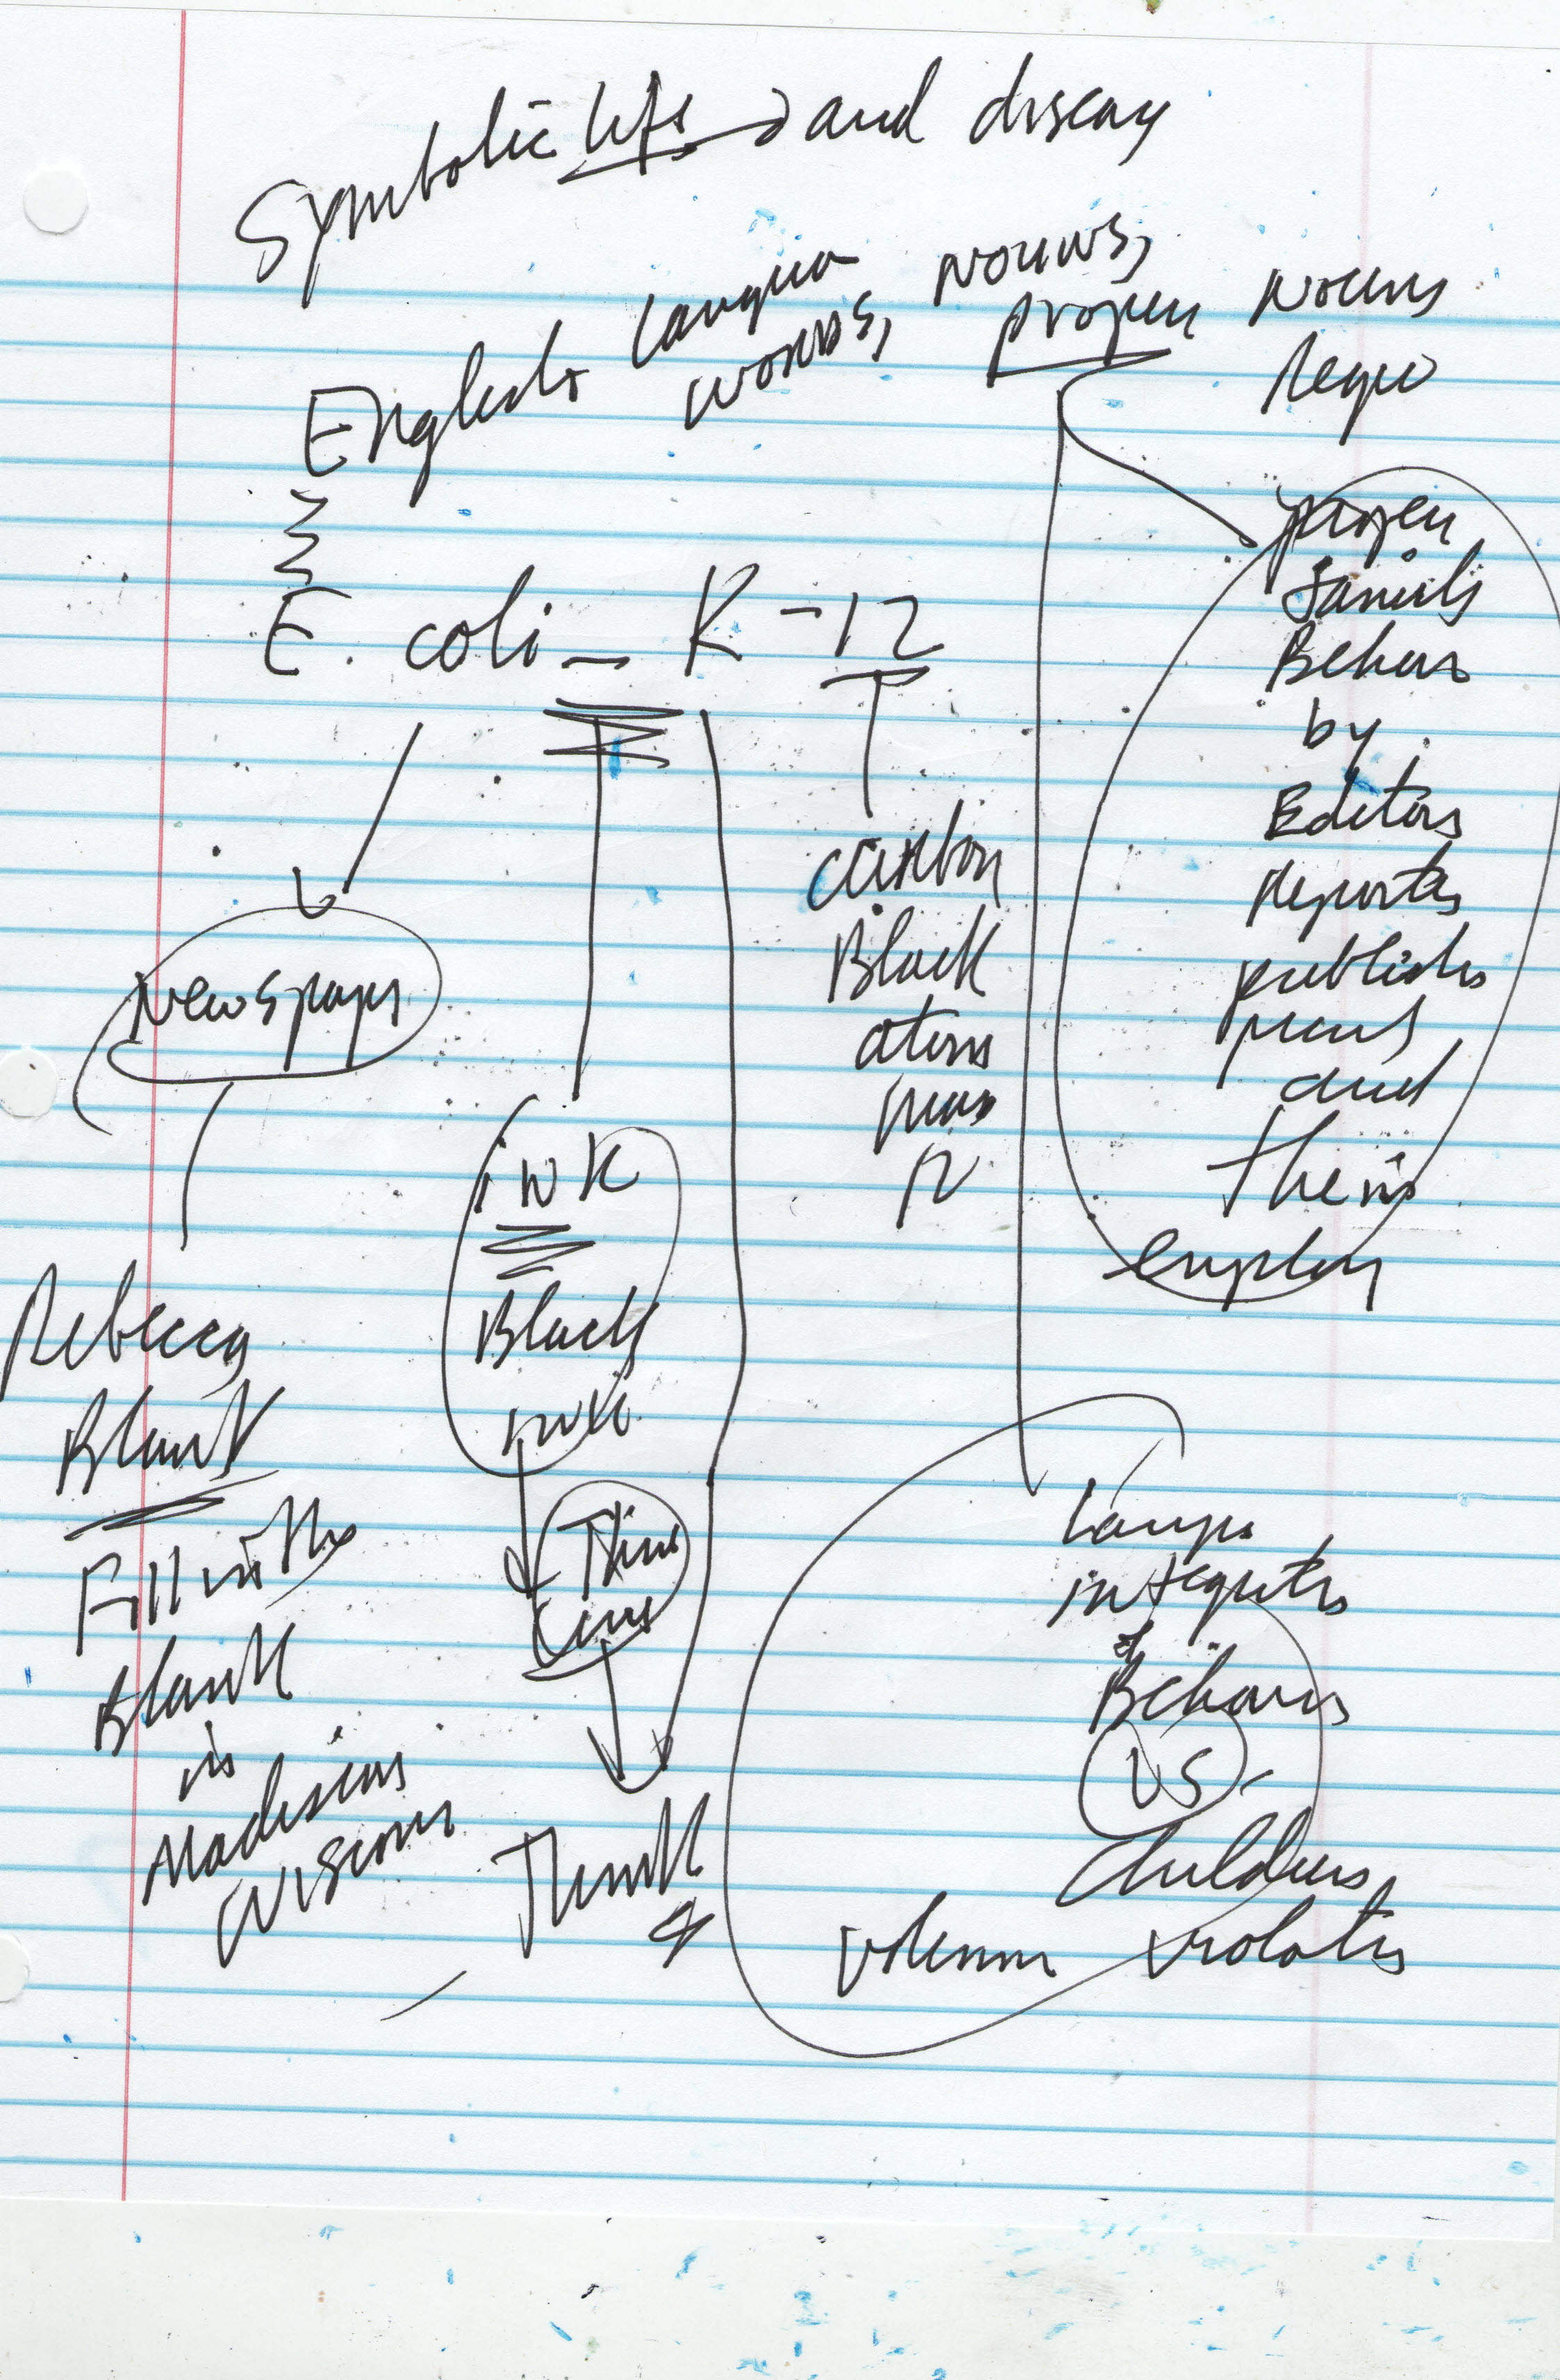 Symbolic life and
English langua
words, nouns,
proper nouns
requ
E. coli - K-12
Newspaper
Rebecca
Blank
Fill in the
Blank
in
Madison
Wiscon
ink
Black
ink
Think
carbon
Black
atom
mass
12
proper
Family
Behav
by
Editors
reporters
publishers
and
their
employ
Langu
integrity
of
Behavior
VS
Childrens
violatis